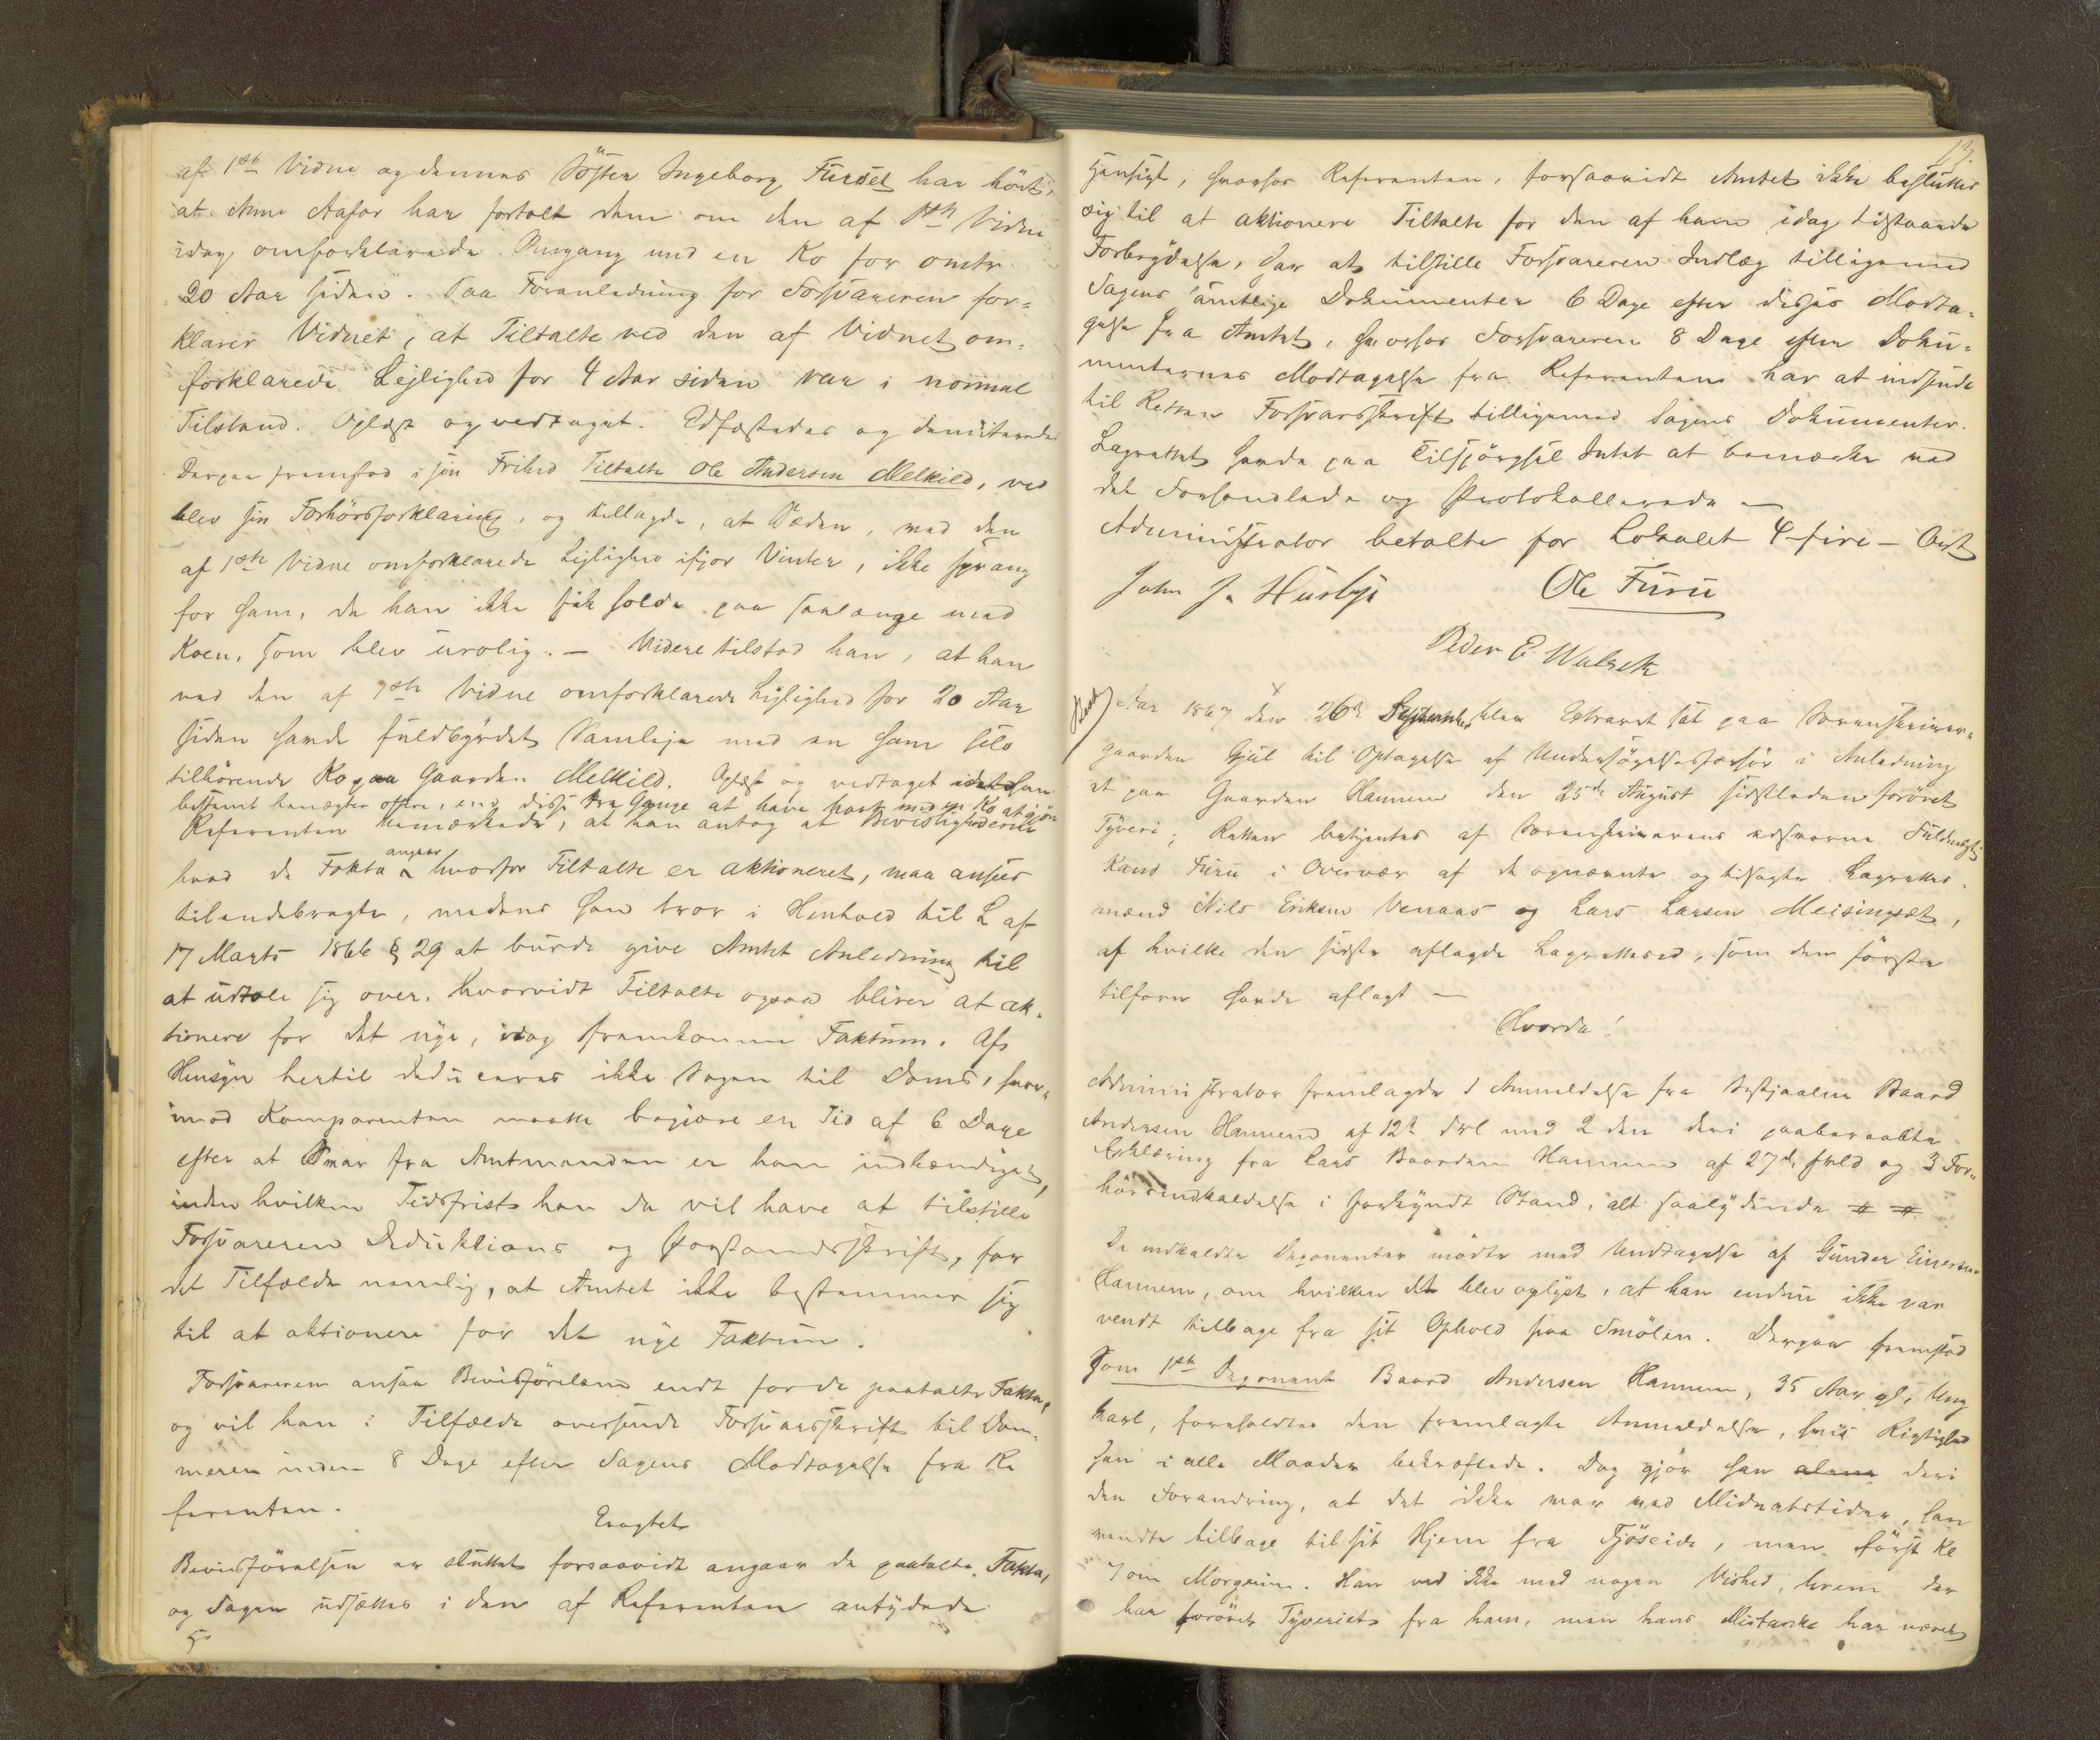 af 1ste Vidne og dennes Søster Ingeborg Furset har hørt,
at Anne Aafar har fortalt dem om den af 1ste Vidne
idag omforklarede Omgang med en Ko for omtr.
20 Aar siden. Paa Foranledning for Forsvareren for-
klarer Vidnet, at Tiltalte ved den af Vidnet om-
forklarede Lejlighed for 4 Aar siden var i normal
Tilstand. Oplæst og vedtaget. Edfæstedes og demitteredes
Derpaa fremstod i sin Frihed Tiltalte Ole Andersen Melkild, ved
blev sin Forhørsforklaring, og tillagde, at Sæden, ved den
af 1ste Vidne omforklarede Lejlighed ifjor Vinter, ikke sprang
for ham, da han ikke fik holde paa saalænge med
Koen, som blev urolig. – Videre tilstod han, at han
ved den af 7de Vidne omforklarede Lejlighed for 20 Aar
siden havde fuldbyrdet Samleje med en ham selv
tilhørende Ko paa Gaarden Melkild. Oplæst og vedtaget idet han
bestemt benægter oftere, end disse tre Gange at have havt med en Ko at gjøre
Referenten bemærkede, at han antog at Bevislighederne
hvad de Fakta angaar hvorfor Tiltalte er aktioneret, maa ansees
tilendebragte, medens han tror i Henhold til L af
17 Marts 1866 § 29 at burde give Amtet Anledning til
at udtale sig over, hvorvidt Tiltalte ogsaa bliver at ak-
tionere for det nye, idag fremkomne Faktum. Af
Hensyn hertil deduceres ikke Sagen til Doms, hvor-
imod Komparenten maatte begjære en Tid af 6 Dage
efter at Svar fra Amtmanden er ham indhændiget,
inden hvilken Tidsfrist han da vil have at tilstille
Forsvareren Deduktions og Paastandsskrift, for
det Tilfælde nemlig, at Amtet ikke bestemmer sig
til at aktionere for det nye Faktum.
Forsvareren ansaa Bevisførelsen endt for de paatalte Fakta,
og vil han i Tilfælde oversende Forsvarsskrift til Dom-
meren inden 8 Dage efter Sagens Modtagelse fra Re
ferenten.
Eragtet
Bevisførelsen er sluttet forsaavidt angaar de paatalte Fakta,
og Sagen udsættes i den af Referenten antydede
5
13.
Hensigt, hvorfor Referenten, forsaavidt Amtet ikke beslutter
sig til at aktionere Tiltalte for den af ham idag tilstaaede
Forbrydelse, har at tilstille Forsvareren Indlæg tilligemed
Sagens samtlige Dokumenter 6 Dage efter disses Modta-
gelse fra Amtet, hvorfor Forsvareren 8 Dage efter Doku-
menternes Modtagelse fra Referenten har at indsende
til Retten Forsvarsskrift tilligemed Sagens Dokumenter.
Lagrettet havde paa Tilspørgsel Intet at bemærke ved
det Forhandlede og Protokollerede –
Administrator betalte for Lokalet 4 – fire – Ort
John J. Husbye Ole Furu
Peder E Walsek
Aar 1867 den 26de September blev Extraret sat paa Sorenskriver-
gaarden Gjul til Optagelse af Undersøgelsesforhør i Anledning
et paa Gaarden Hannem den 25de August sidstleden forøvet
Tyveri; Retten betjentes af Sorenskriverens edsvorne Fuldmægtig
Kand Furu i Overvær af de opnævnte og tilsagte Lagrettes-
mænd Nils Eriksen Venaas og Lars Larsen Meisingset,
af hvilke den sidste aflagde Lagrettesed, som den første
tilforn havde aflagt –
Hvorda!
Administrator fremlagde 1 Anmeldelse fra Baard
Andersen Hannem af 12te ds med 2 den deri paaberaabte
Erklæring fra Lars Baardsen Hannem af 27de f. Md og 3 For-
hørsindkaldelse i forkyndt Stand, alt saalydende # #
De indkaldte Deponenter mødte med Undtagelse af Gunder Einersen
Hannem, om hvilken det blev oplyst, at han endnu ikke var
vendt tilbage fra sit Ophold paa Smølen. Derpaa fremstod
Som 1ste Deponent Baard Andersen Hannem, 35 Aar gl, Ung
karl, foreholdtes den fremlagte Anmeldelse, hvis Rigtighed
han i alle Maader bekræftede. Dog gjør han alene deri
den Forandring, at det ikke var ved Midnatstider, han
vendte tilbage til sit Hjem fra Tjøseide, men først Kl
7 om Morgenen. Han ved ikke med nogen Vished, hvem der
har forøvet Tyveriet fra ham, men hans Mistanke har været